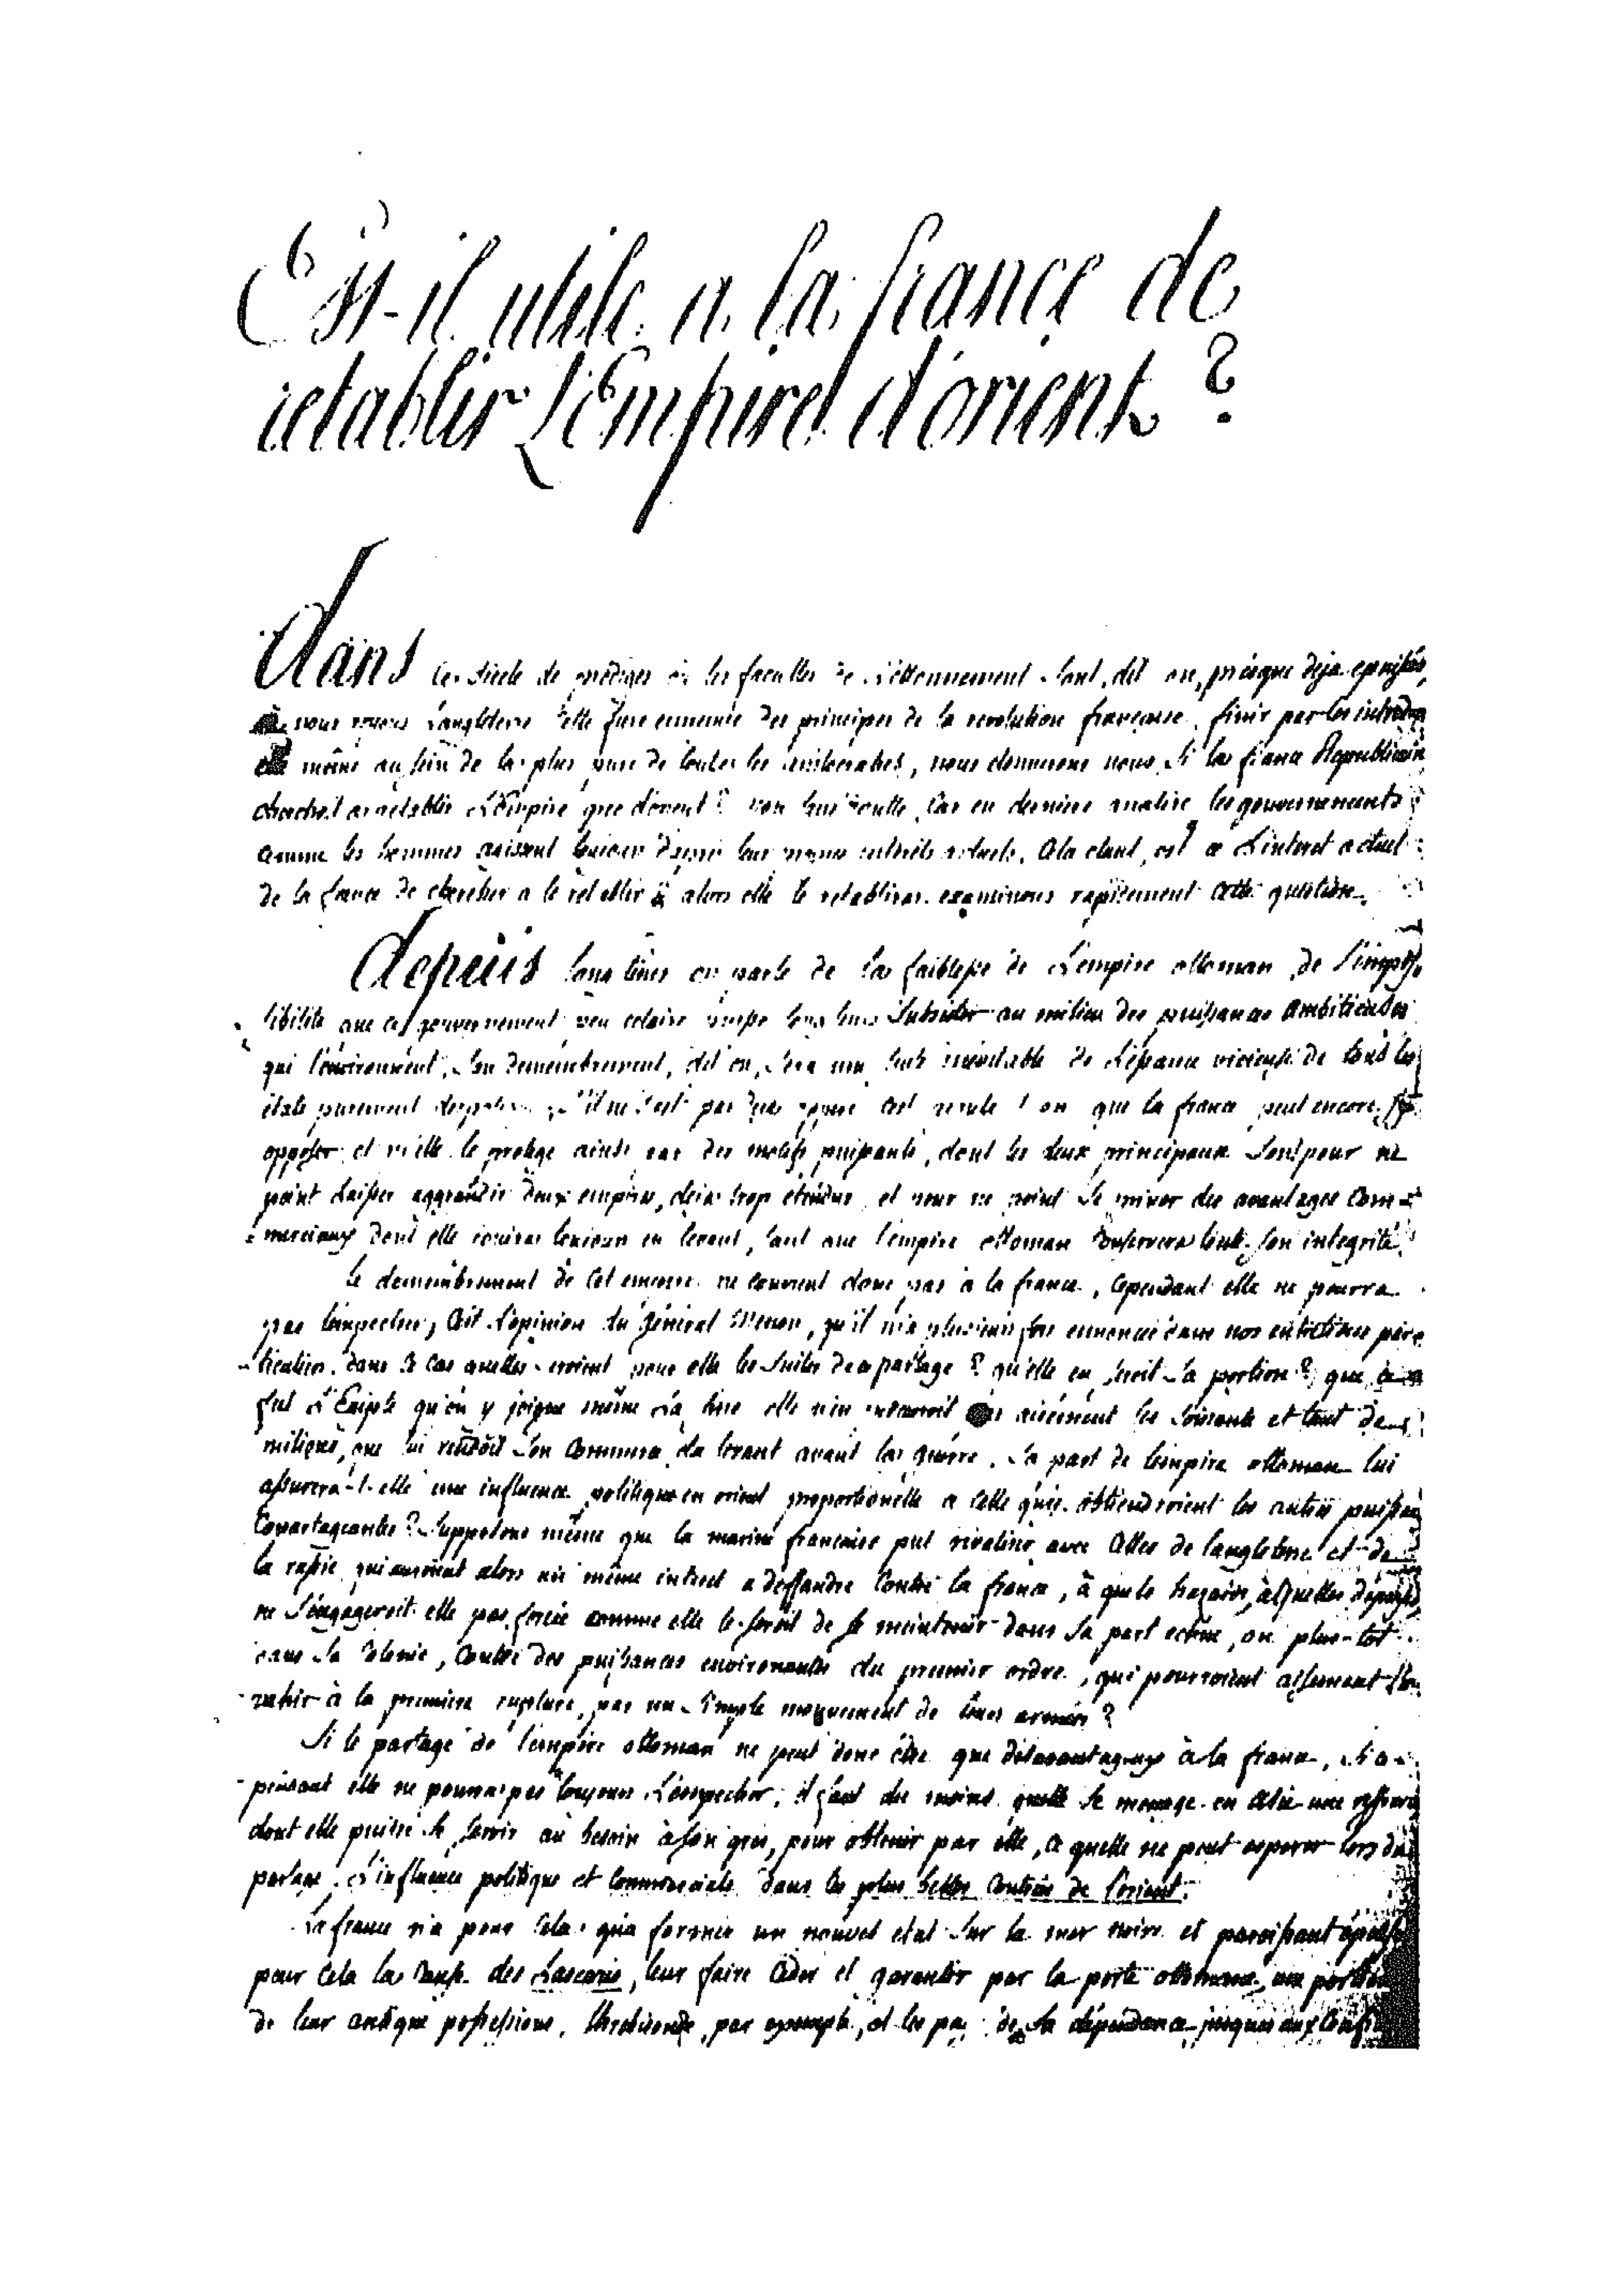 Est-il utile a la france de
retablir L'Empire d'orient ?
dans ce siecle de prodiges où les facultes de L'étonnement sont, dit on, presque deja epuisées,
nous voyons L'angleterre cette fiere ennemie des principes de la revolution française, finir par les introduire
elle même au sein de la plus pure de toutes les aristocraties, nous étonnerons nous, si la france Republicaine
cherchoit a retablir L'Empire grec d'orient ? non sans doutte, Car en derniere analise les gouvernements
comme les hommes agissent toujours d'après leur propres interêts actuels. Cela étant, est ce L'interet actuel
de la france de chercher a le retablir ? alors elle le retablira. examinons rapidement cette question.
depuis long tems on parle de la faiblesse de L'empire ottoman, de l'impos
sibilité que ce gouvernement peu eclairé puisse long tems subsister au milieu des puissances ambitieuses
qui l'environnent. Son demembrement, dit on, sera une suite inévitable de L'essence vicieuse de tous les
états purement despotiques, s'il ne s'est pas encore operé c'est ajoute t on que la france peut encore s'y
opposer et qu'elle le protege ainsi par des motifs puissants, dont les deux principaux sont pour ne
point Laisser aggrandir deux empires, deja trop étendus, et pour ne point se priver des avantages com-
merciaux dont elle jouira toujours en levant, tant que l'empire ottoman conservera toute son integrité.
Le demembrement de cet empire ne convient donc pas à la france, Cependant elle ne pourra
pas l'empecher, C'est L'opinion du général Menou, qu'il m'a plusieurs fois ennoncée dans nos entretiens par
ticuliers. dans ce cas quelles seroient pour elle les suites de ce partage ? qu'elle en seroit sa portion ? que ce
fut L'Egipte qu'on y joigne même elle n'en retireroit pas aisément les soixante et tant de
milions, que lui rendoit son Commerce du levant avant la guerre. Sa part de l'empire ottoman lui
assurera-t-elle une influence politique en orient proportionelle a celle qu'en obtiendroient les autres puissances
Copartageantes ? Supposons même que la marine française put rivaliser avec Celles de l'angleterre et de
la russie, qui auroient alors un même interet a deffendre Contre la france, à quels hazards, à quelles dépenses
ne s'engageroit elle pas forcée comme elle le seroit de se maintenir dans sa part echue, ou plus-tot
dans sa Colonie, Contre des puissances environnantes du premier ordre, qui pourroient aisement l'en
vahir à la premiere rupture, par un simple mouvement de leurs armées ?
Si le partage de l'empire ottoman ne peut donc être que désavantageux à la france, si ce-
pendant elle ne pourra pas toujours L'empecher, il faut du moins quelle se menage en asie une ressource
dont elle puisse se servir au besoin à son gré, pour obtenir par elle, ce quelle ne peut esperer lors du
partage, L'influence politique et Commerciale dans les plus belles Contrées de l'orient.
La france n'a pour Cela qu'a former un nouvel etat sur la mer noire et paroissant épouser
pour Cela la Cause des Lascaris, leur faire Ceder et garantir par la porte ottomane, une portion
de leur antique possessions, Trebisonde, par exemple, et les pays de sa dépendance jusques aux Confins